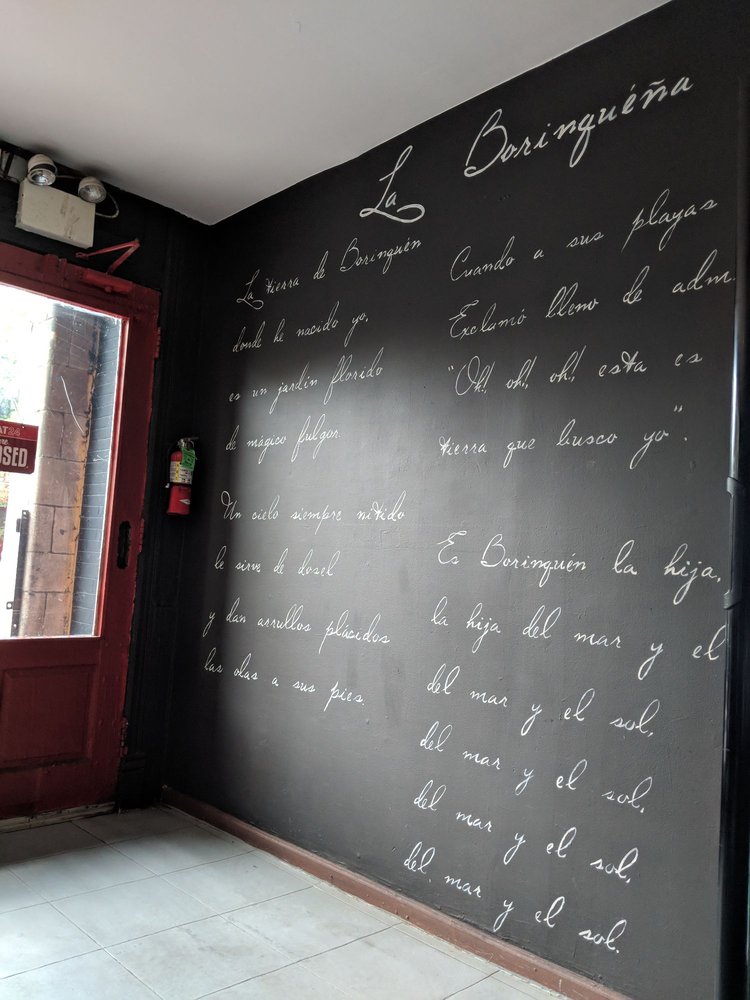 La Borinquéña
La tierra de Borinquén
donde he nacido yo,
es un jardín florido
de mágico fulgor.
Un cielo siempre nitido
le sirve de dosel
y dan arrullos plácidos
las olas a sus pies.
Cuando a sus playas
Exclamó lleno de adm
"Oh!, oh!, oh!, esta es
tierra que busco yo".
Es Borinquén la hija,
la hija del mar y el
del mar y el sol,
del mar y el sol,
del mar y el sol,
del mar y el sol.
AT24
OSED